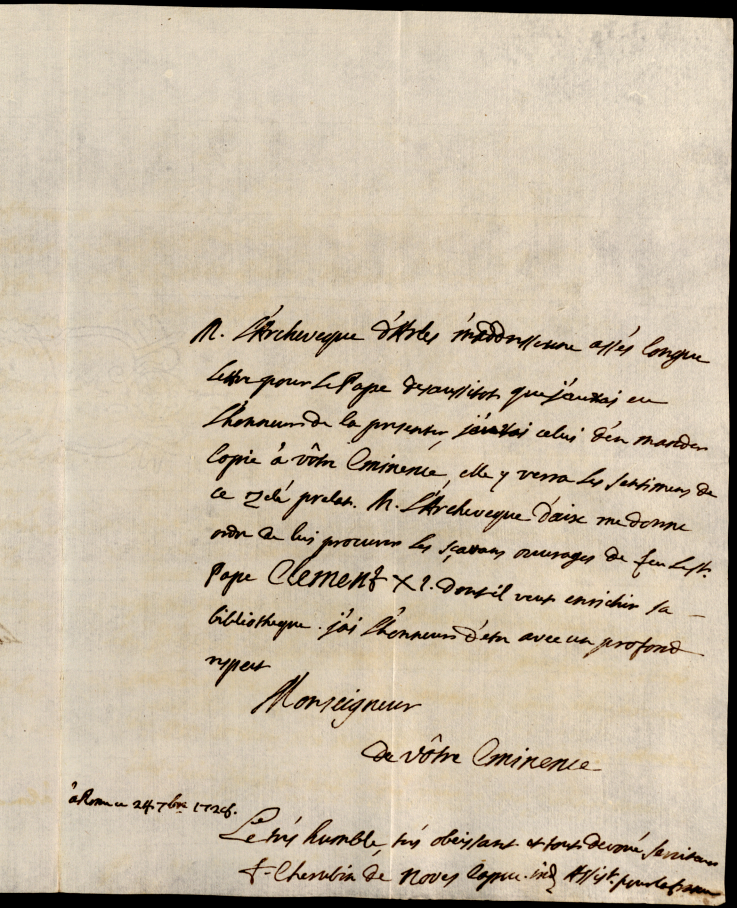 M. L'Archeveque d'Arles m'addresse une assés longue
Lettre pour Le Pape des aussitot que j'aurai eu
L'honneur de la presenter, j'aurai celui d'en mander
Copie à vôtre Eminence, elle y verra Les sentimens de
ce zelé prelat. M. L'Archeveque d'aix me donne
ordre de lui procurer Les sçavans ouvrages de feu Le St.
Pape Clement XI. dont il veut enrichir sa
bibliotheque. j'ai L'honneur d'etre avec un profond
respect
Monseigneur
de vôtre Eminence
à Rome ce 24 7bre
Le trés humble, trés obeissant et tout devoué serviteur
f. Cherubin de Noves Capuc. ind. Assist. pour la france